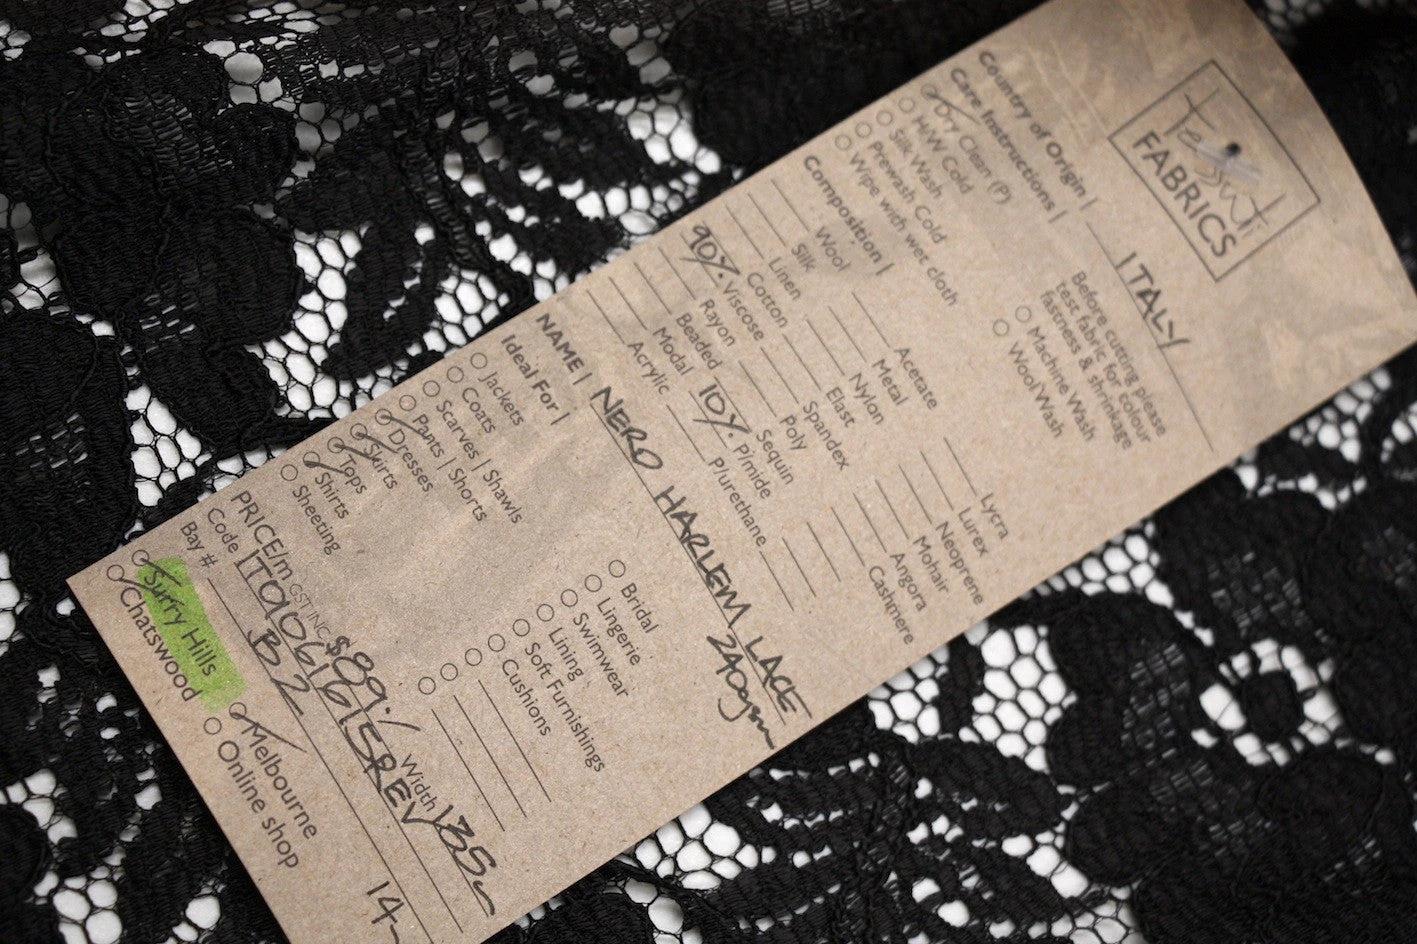 Tessuti
FABRICS
Country of Origin | ITALY
Care Instructions |
Dry Clean (P)
H/W Cold
Silk Wash
Prewash Cold
Wipe with wet cloth
Before cutting please
test fabric for colour
fastness & shrinkage
Machine Wash
Wool Wash
Composition |
Wool
Silk
Linen
Cotton
90% Viscose
Rayon
Beaded
Modal
Acrylic
Acetate
Metal
Nylon
Elast
Spandex
Poly
Sequin
10% P/mide
P/urethane
Lycra
Lurex
Neoprene
Mohair
Angora
Cashmere
NAME | NERO HARLEM LACE
240gsm
Ideal For |
Jackets
Coats
Scarves | Shawls
Pants | Shorts
Dresses
Skirts
Tops
Shirts
Sheeting
Bridal
Lingerie
Swimwear
Lining
Soft Furnishings
Cushions
PRICE/m GST INC $89./ Width 135
Code ITQ061615REV
Bay # B2 14
Surry Hills
Chatswood
Melbourne
Online shop